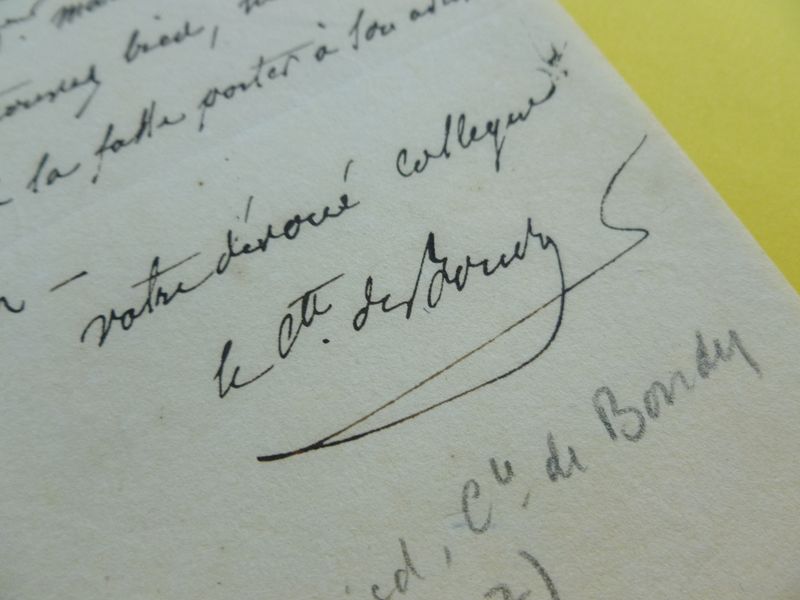 bien,
la faire porter à son
votre dévoué collegue
le Cte. de Bondy
Cte. de Bondy